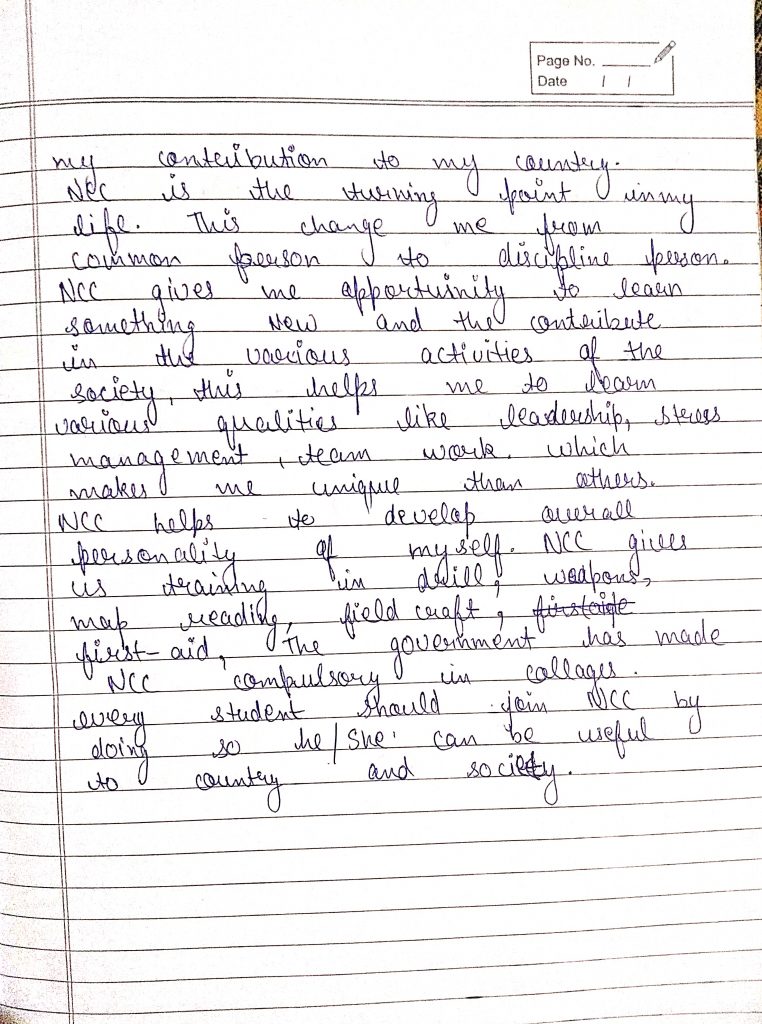 Page No.
Date / /
my contribution to my country.
NCC is the turning point in my
life. This change me from
common person to discipline person.
NCC gives me apportuinity to learn
something new and the contribute
in the various activities of the
society, this helps me to learn
various qualities like leadership, stress
management, team work. which
makes me unique than others.
NCC helps to develop overall
personality of my self. NCC gives
us training in drill, weapons,
map reading, field craft, firstaide
first-aid, The government has made
NCC compulsory in collages.
every student should join NCC by
doing so he/she can be useful
to country and society.